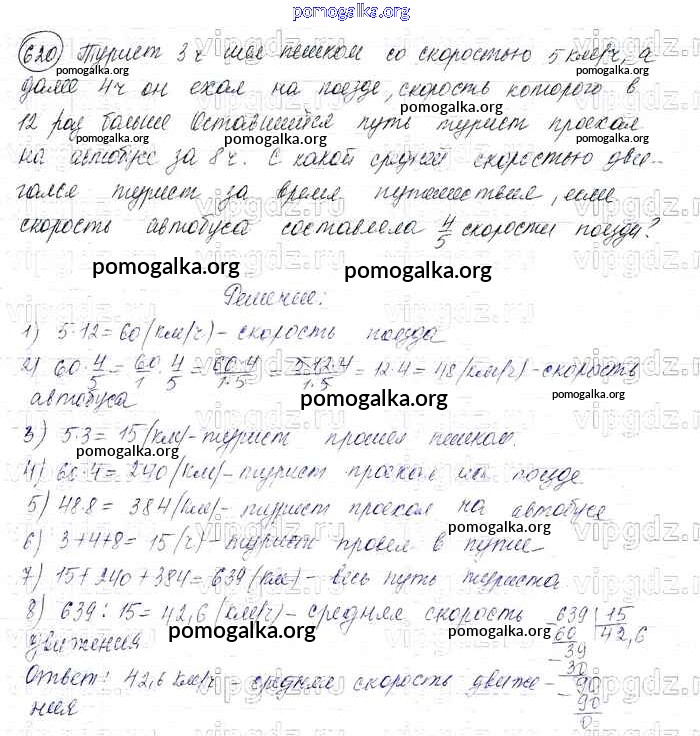 pomogalka.org
620 Турист 3 ч шел пешком со скоростью 5 км/ч, а
далее 4ч он ехал на поезде, скорость которого в
12 раз больше. Оставшийся путь турист проехал
на автобусе за 8 ч. С какой средней скоростью дви-
гался турист за время путешествия, если
скорость автобуса составляла 4/5 скорости поезда?
pomogalka.org pomogalka.org
Решение:
1) 5·12 = 60 (км/ч) - скорость поезда
2) 60·4/5 = 60/1·4/5 = 60·4/1·5 = 5·12·4/1·5 = 12·4 = 48 (км/ч) - скорость
автобуса
3) 5·3 = 15 (км) - турист прошел пешком.
4) 60·4 = 240 (км) - турист проехал на поезде
5) 48·8 = 384 (км) - турист проехал на автобусе
6) 3+4+8 = 15 (ч) - турист провел в пути
7) 15+240+384 = 639 (км) - весь путь туриста.
8) 639 : 15 = 42,6 (км/ч) - средняя скорость
движения
639 15
60 42,6
39
30
90
90
0
Ответ: 42,6 км/ч - средняя скорость движе-
ния